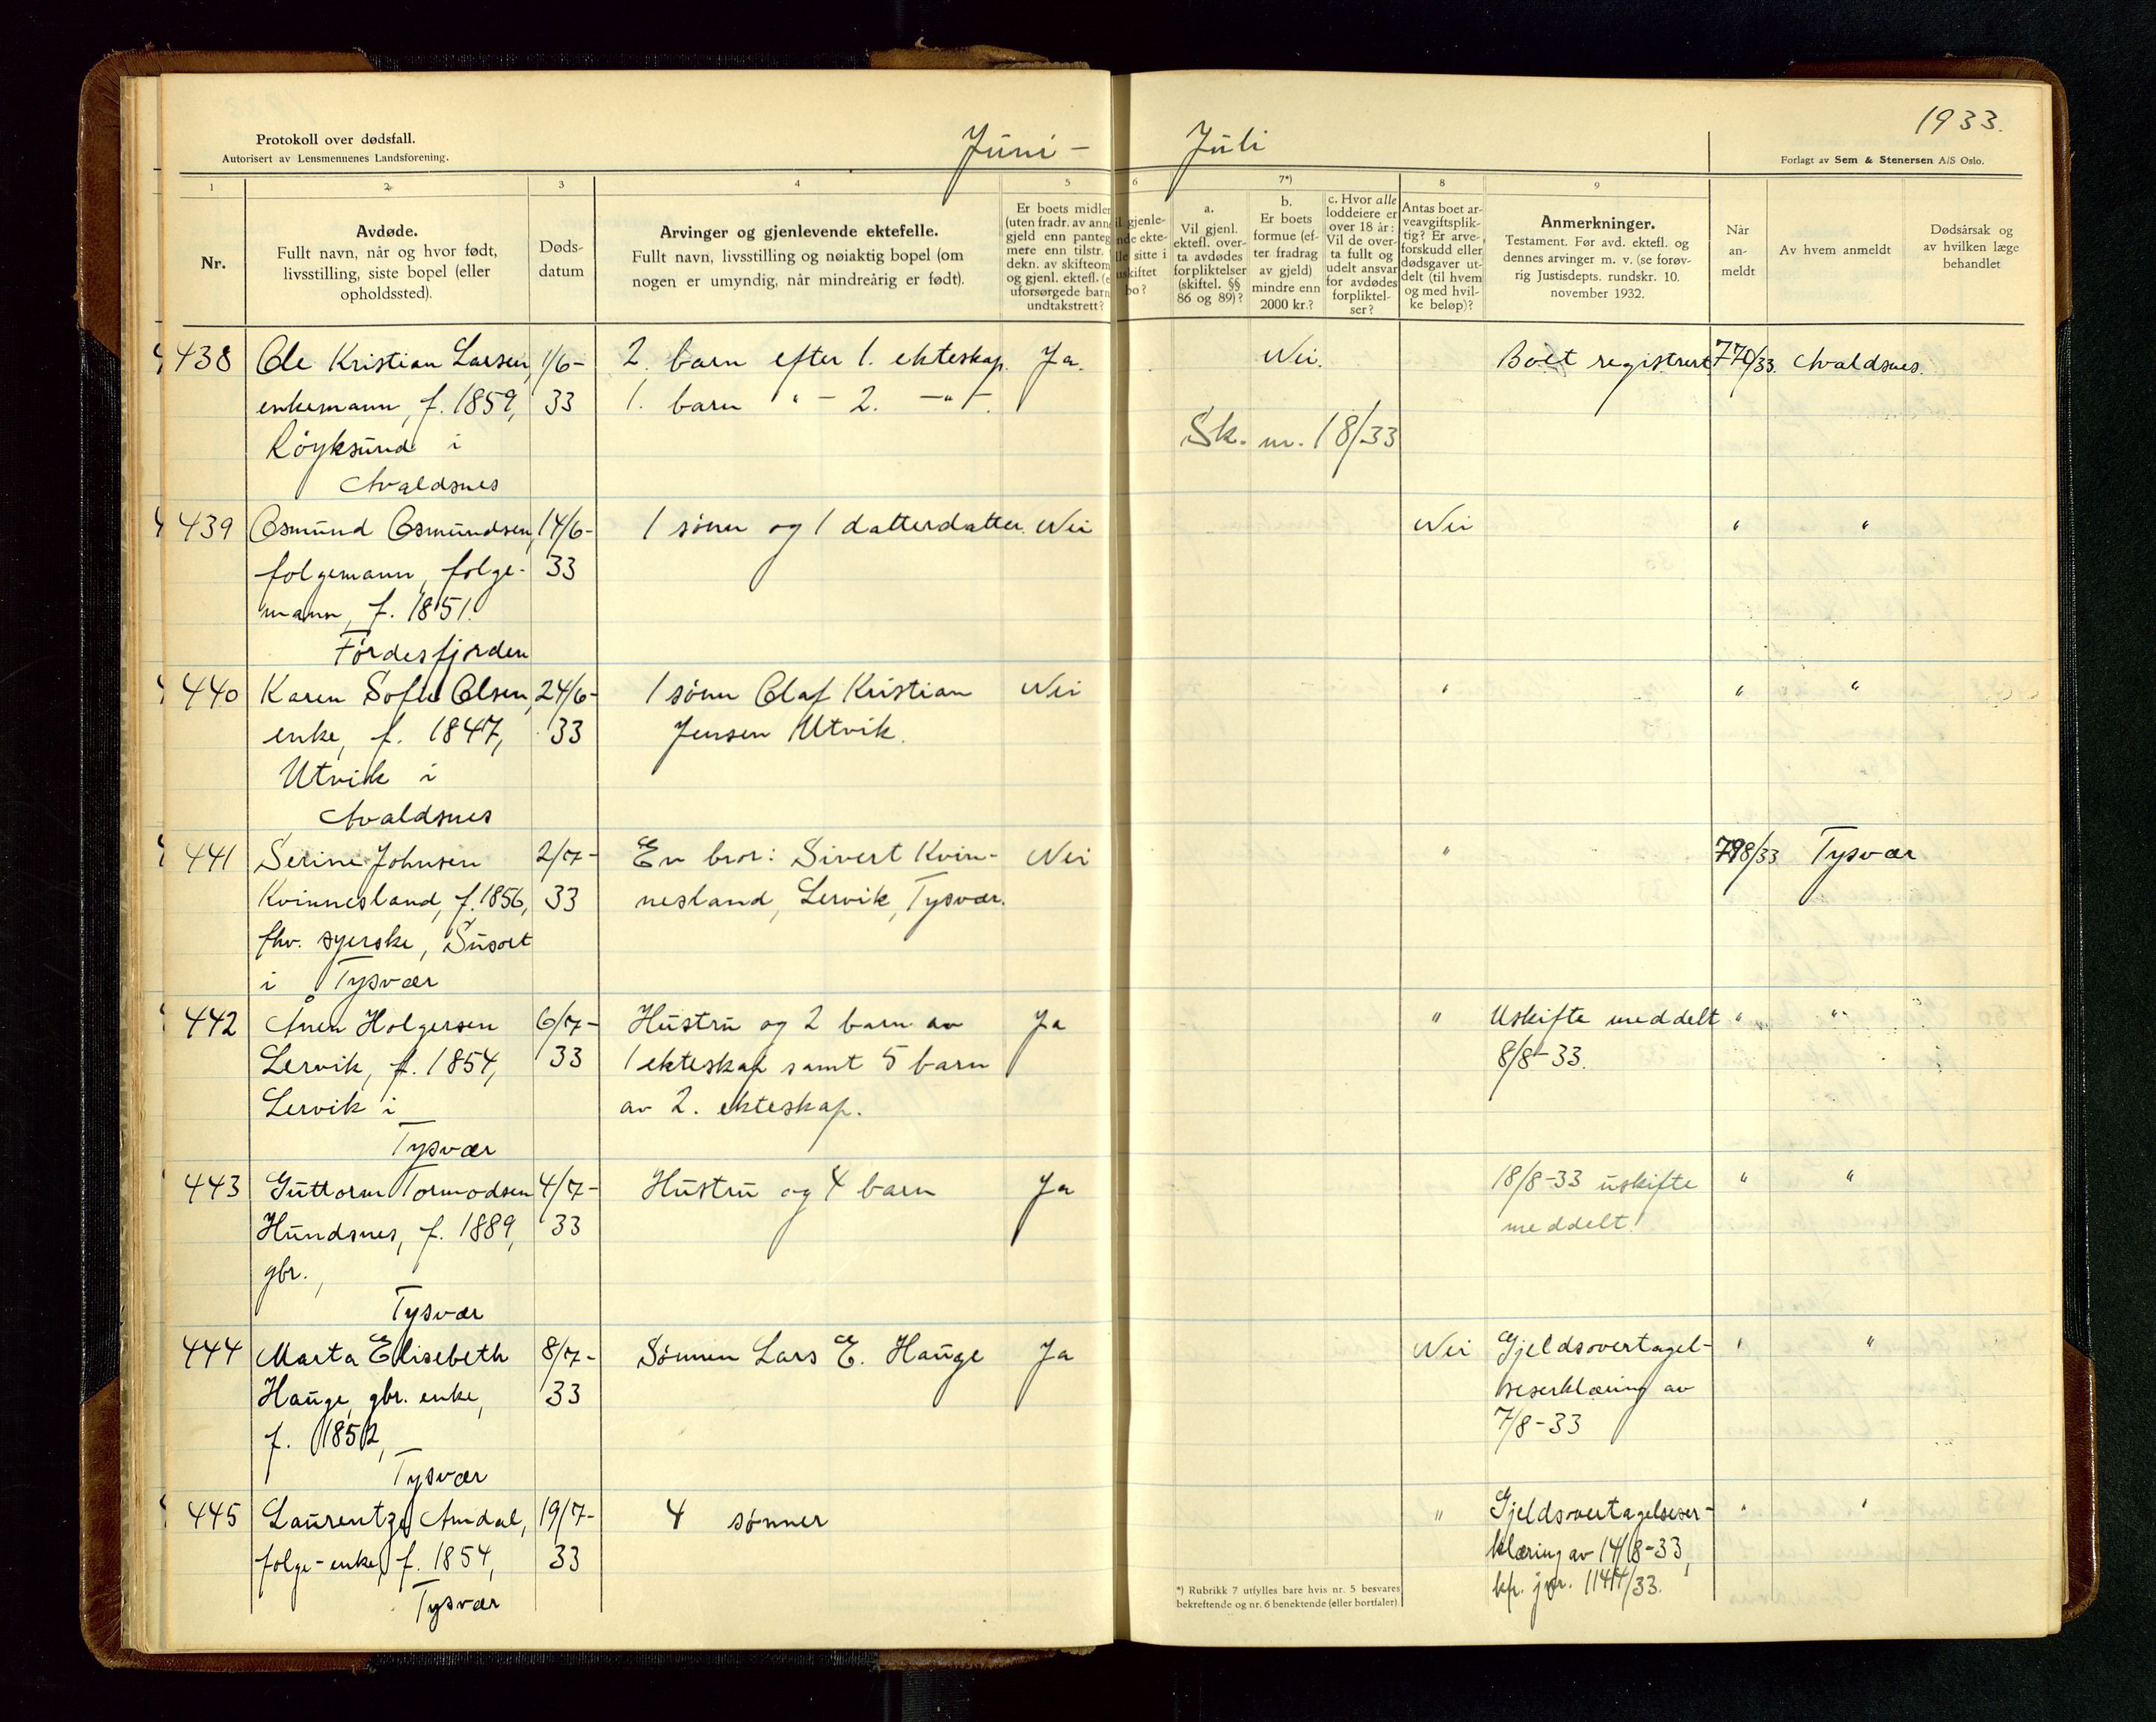 1933.
Juni - Juli
Protokoll over dødsfall.
Autorisert av Lensmennenes Landsforening.
Forlagt av Sem & Stenersen A/S Oslo.
1 2 3 4 5 6 7*) 8 9
Nr.
Avdøde.
Fullt navn, når og hvor født,
livsstilling, siste bopel (eller
opholdssted).
Døds-
datum
Arvinger og gjenlevende ektefelle.
Fullt navn, livsstilling og nøiaktig bopel (om
nogen er umyndig, når mindreårig er født).
Er boets midler
(uten fradr. av ann
gjeld enn panteg
mere enn tilstr.
dekn. av skifteom
og gjenl. ektefl. (e
uforsørgede barn
undtakstrett?
il gjenle-
nde ekte-
lle sitte i
uskiftet
bo?
a.
Vil gjenl.
ektefl. over-
ta avdødes
forpliktelser
(skiftel. §§
86 og 89)?
b.
Er boets
formue (ef-
ter fradrag
av gjeld)
mindre enn
2000 kr.?
c. Hvor alle
loddeiere er
over 18 år:
Vil de over-
ta fullt og
udelt ansvar
for avdødes
forpliktel-
ser?
Antas boet ar-
veavgiftsplik-
tig? Er arve-
forskudd eller
dødsgaver ut-
delt (til hvem
og med hvil-
ke beløp)?
Anmerkninger.
Testament. Før avd. ektefl. og
dennes arvinger m. v. (se forøv-
rig Justisdepts. rundskr. 10.
november 1932.
Når
an-
meldt
Av hvem anmeldt
Dødsårsak og
av hvilken læge
behandlet
438 Ole Kristian Larsen, 1/6- 2. barn efter 1. ekteskap. Ja. Nei. Boet registrert 770/33. Avaldsnes.
enkemann, f. 1859, 33 1. barn " - 2. -"-.
Røyksund i Sk. nr. 18/33
Avaldsnes
439 Osmund Osmundsen, 14/6- 1 sønn og 1 datterdatter. Nei Nei " "
folgemann, folge- 33
mann, f. 1851.
Førdesfjorden
440 Karen Sofie Olsen, 24/6- 1 sønn Olaf Kristian Nei " " "
enke, f. 1847, 33 Jensen Utvik.
Utvik i
Avaldsnes
441 Serine Johnsen 2/7- En bror: Sivert Kvin- Nei " 798/33 Tysvær
Kvinnesland, f. 1856, 33 nesland, Lervik, Tysvær.
fhv. syerske, Susort
i Tysvær
442 Ånen Holgersen 6/7- Hustru og 2 barn av Ja " Uskifte meddelt " "
Lervik, f. 1854, 33 1 ekteskap samt 5 barn 8/8-33.
Lervik i av 2. ekteskap.
Tysvær
443 Guttorm Tormodsen 4/7- Hustru og 4 barn Ja 18/8-33 uskifte " "
Hundsnes, f. 1889, 33 meddelt.
gbr.,
Tysvær
444 Marta Elisebeth 8/7- Sønnen Lars E. Hauge Ja Nei Gjeldsovertagel- " "
Hauge, gbr. enke, 33 seserklæring av
f. 1852, 7/8-33
Tysvær
445 Laurentze Amdal, 19/7- 4 sønner " Gjeldsovertagelseser- " "
folge-enke, f. 1854, 33 klæring av 14/8-33,
Tysvær kfr. jnr. 1144/33.
*) Rubrikk 7 utfylles bare hvis nr. 5 besvares
bekreftende og nr. 6 benektende (eller bortfaler).